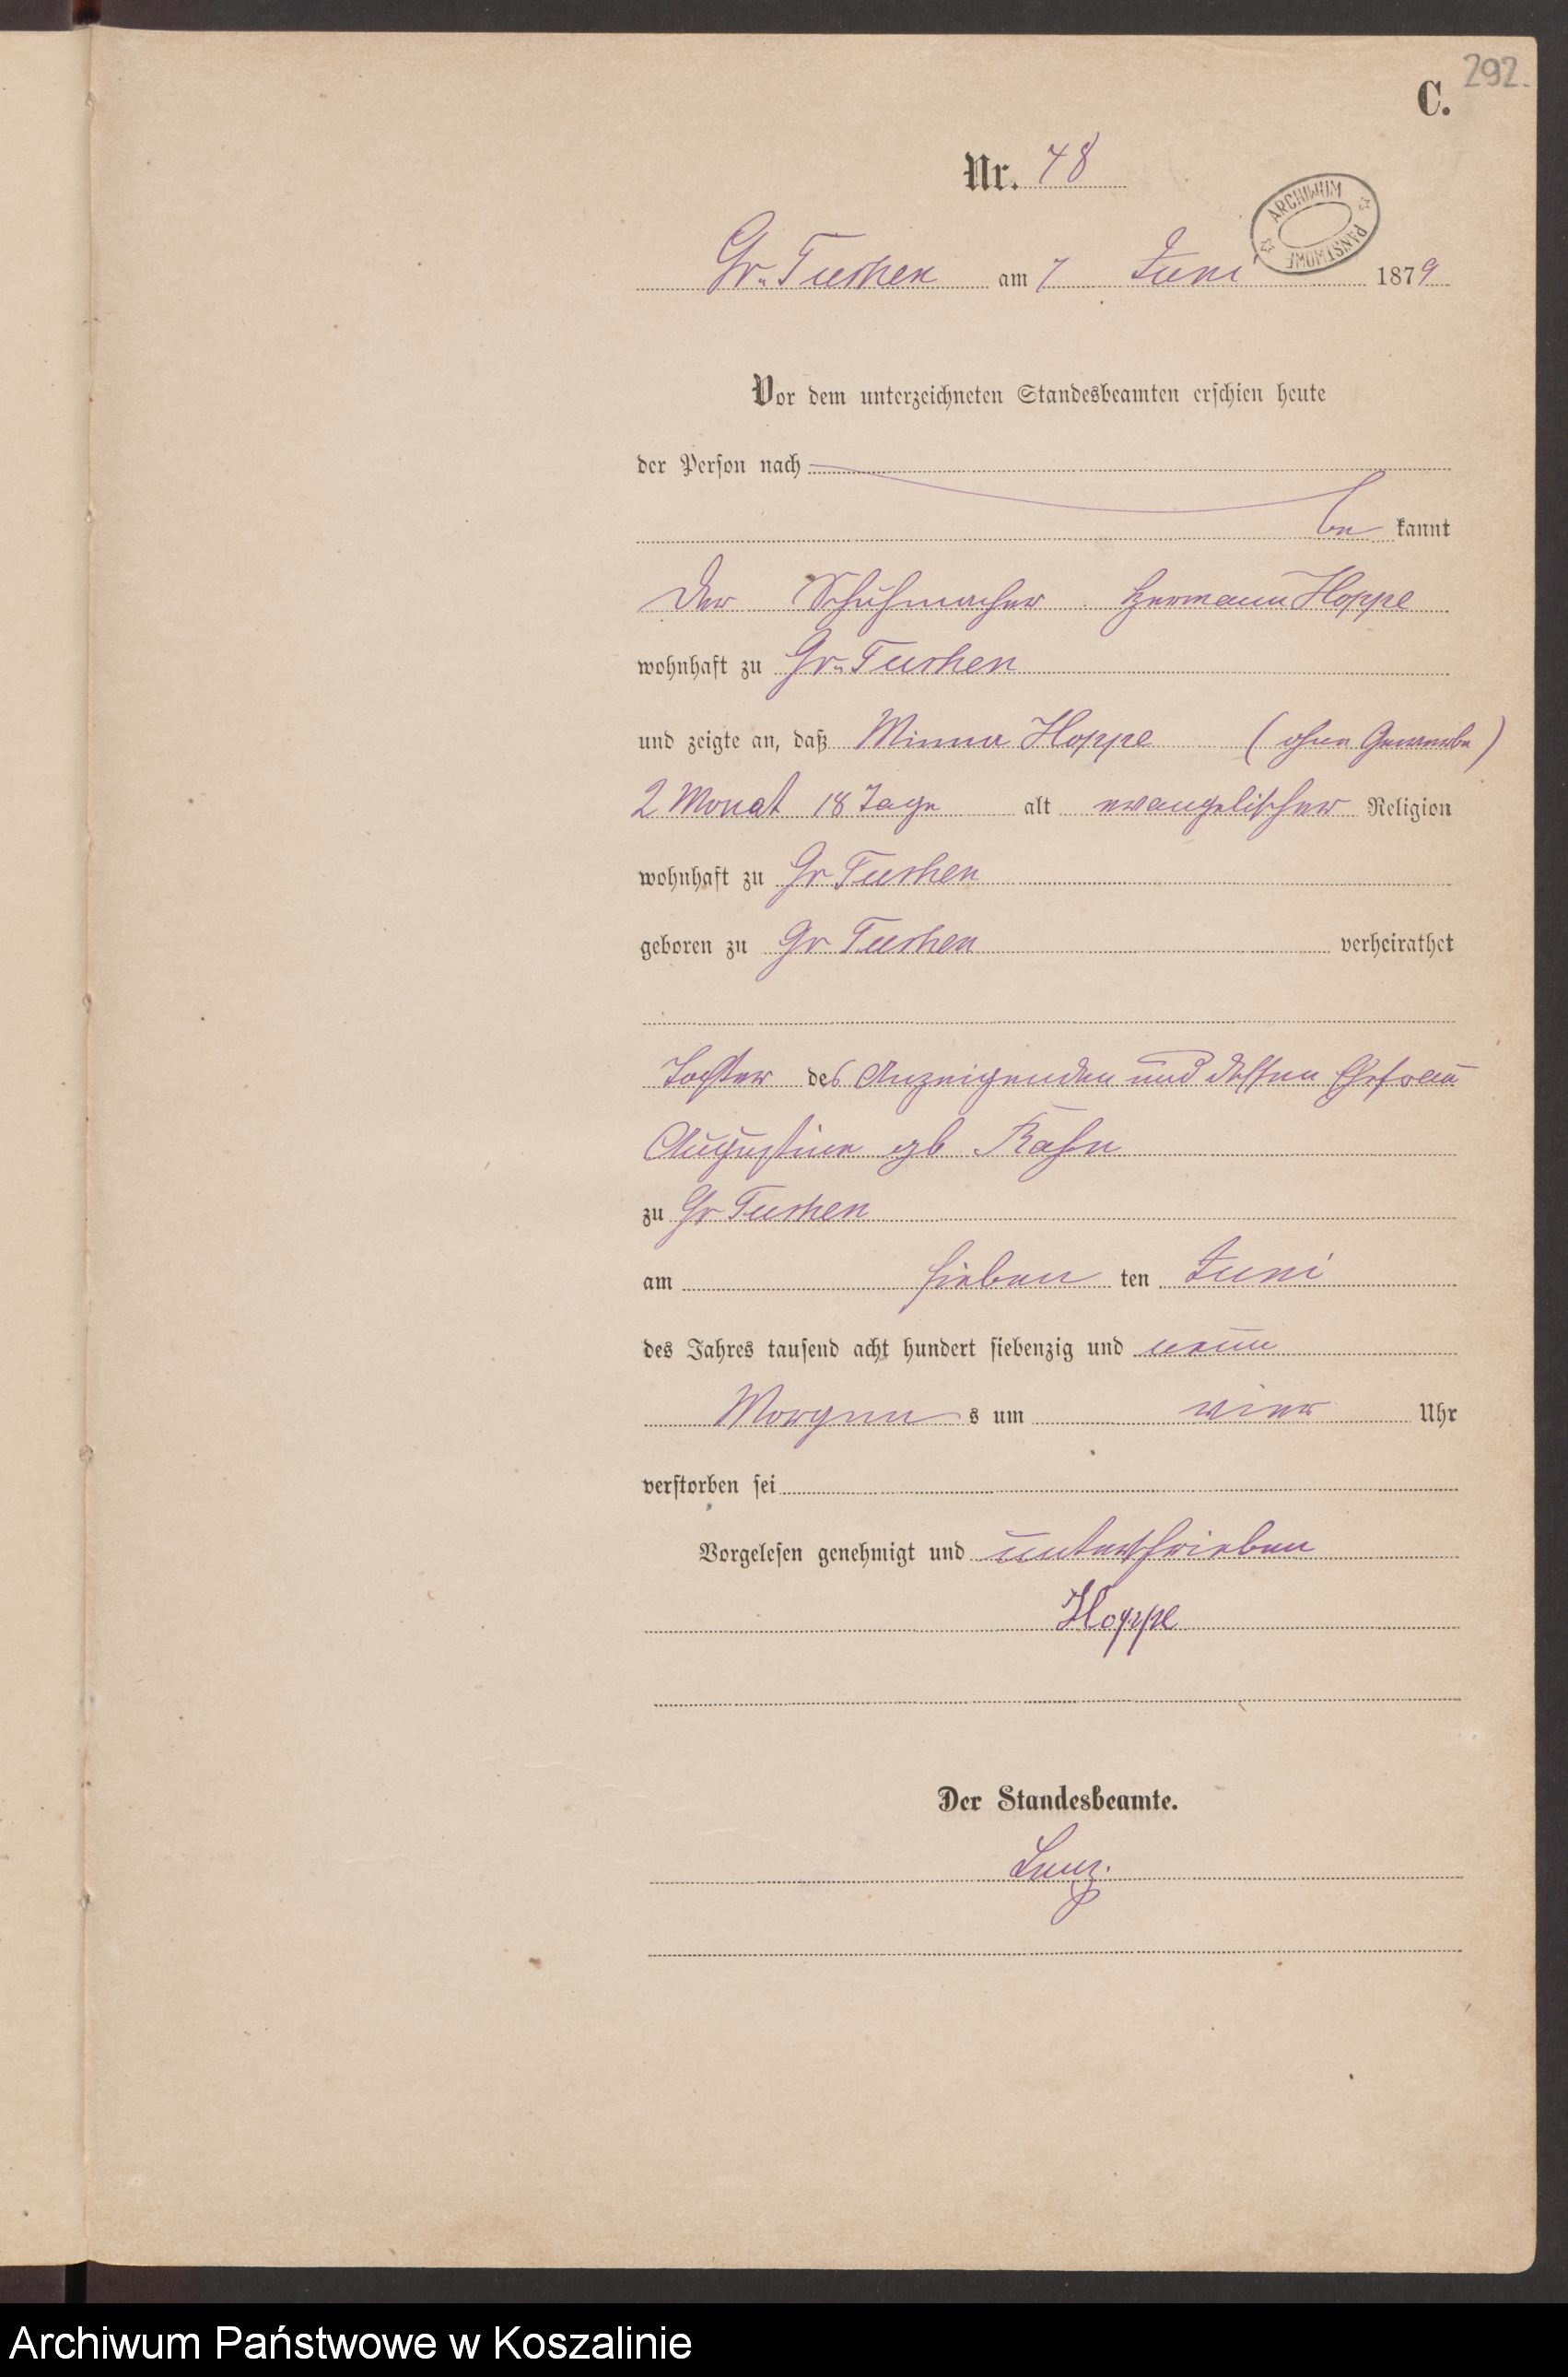 292.
C.
Nr. 48
ARCHIWUM PAŃSTWOWE
Gr. Tuchen am 7 Juni 1879
Vor dem unterzeichneten Standesbeamten erschien heute
der Person nach
be kannt
der Schuhmacher Hermann Hoppe
wohnhaft zu Gr. Tuchen
und zeigte an, daß Minna Hoppe (ohne Gewerbe)
2 Monat 18 Tage alt evangelischer Religion
wohnhaft zu Gr Tuchen
geboren zu Gr Tuchen verheirathet
Tochter des Anzeigenden und dessen Ehefrau
Augustine gb
zu Gr Tuchen
am sieben ten Juni
des Jahres tausend acht hundert siebenzig und neun
Morgen s um vier Uhr
verstorben sei
Vorgelesen genehmigt und unterschrieben
Hoppe
Der Standesbeamte.
Archiwum Państwowe w Koszalinie